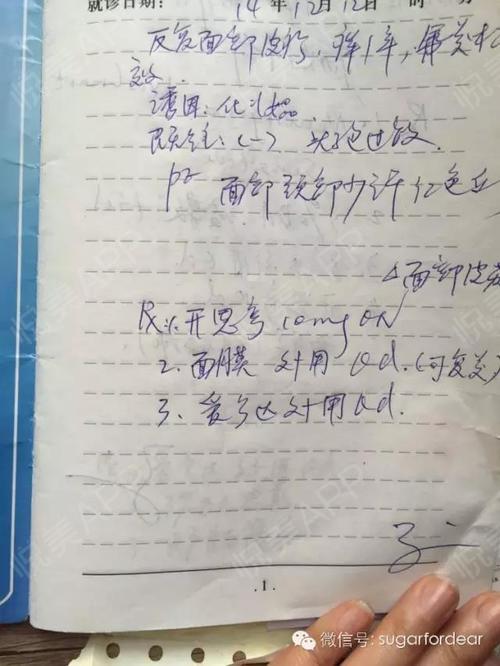 就诊日期: 14 年 12月 12日 时 分
反复面部皮疹, 痒1年, 屡发
效.
诱因: 化妆品.
既往: (-) 头孢过敏.
pe 面部颈部少许红色丘
△面部皮炎
Rx: 1. 开思亭 10mg QN
2. 面膜 外用 Qd. (可复美)
3. 爱多达外用 Qd.
.1.
微信号: sugarfordear
悦美APP